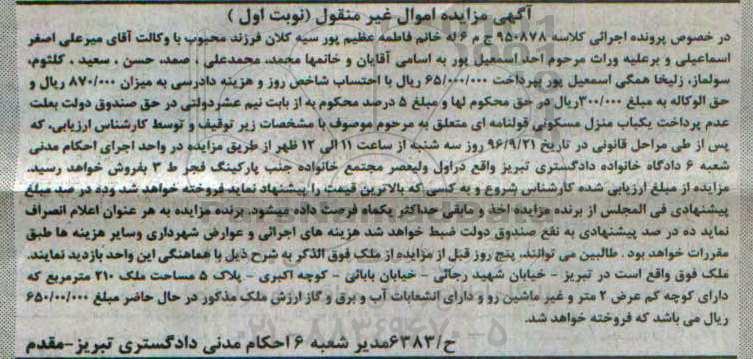 آگهی مزایده اموال غیر منقول (نوبت اول )
در خصوص پرونده اجرائی کلاسه ۹۵۰۸۷۸ ج م ۶ له خانم فاطمه عظیم پور سیه کلان فرزند محبوب با وکالت آقای میرعلی اصغر
اسماعیلی و برعلیه وراث مرحوم احد اسمعیل پور به اسامی آقایان و خانمها محمد، محمدعلی ، صمد، حسن ، سعید ، کلثوم،
سولماز، زلیخا همگی اسمعیل پور بپرداخت ۶۵/۰۰۰/۰۰۰ ریال با احتساب شاخص روز و هزینه دادرسی به میزان ۸۷۰/۰۰۰ ریال و
حق الوکاله به مبلغ ۳۰۰/۰۰۰ریال در حق محکوم لها و مبلغ ۵ درصد محکوم به از بابت نیم عشردولتی در حق صندوق دولت بعلت
عدم پرداخت یکباب منزل مسکونی قولنامه ای متعلق به مرحوم موصوف با مشخصات زیر توقیف و توسط کارشناس ارزیابی، که
پس از طی مراحل قانونی در تاریخ ۹۶/۹/۲۱ روز سه شنبه از ساعت ۱۱ الی ۱۲ ظهر از طریق مزایده در واحد اجرای احکام مدنی
شعبه ۶ دادگاه خانواده دادگستری تبریز واقع دراول ولیعصر مجتمع خانواده جنب پارکینگ فجر ط ۳ بفروش خواهد رسید.
مزایده از مبلغ ارزیابی شده کارشناس شروع و به کسی که بالاترین قیمت را پیشنهاد نماید فروخته خواهد شد وده در صد مبلغ
پیشنهادی فی المجلس از برنده مزایده اخذ و مابقی حداکثر یکماه فرصت داده میشود. برنده مزایده به هر عنوان اعلام انصراف
نماید ده در صد پیشنهادی به نفع صندوق دولت ضبط خواهد شد هزینه های اجرائی و عوارض شهرداری وسایر هزینه ها طبق
مقررات خواهد بود . طالبین می توانند، پنج روز قبل از مزایده از ملک فوق الذکر به شرح ذیل با هماهنگی این واحد بازدید نمایند.
ملک فوق واقع است در تبریز – خیابان شهید رجائی – خیابان بابائی – کوچه اکبری – پلاک ۵ مساحت ملک ۲۱۰ مترمربع که
دارای کوچه کم عرض ۲ متر و غیر ماشین رو و دارای انشعابات آب و برق و گاز ارزش ملک مذکور در حال حاضر مبلغ ۶۵۰/۰۰/۰۰۰
ریال می باشد که فروخته خواهد شد.
ح/۶۳۸۳مدیر شعبه ۶ احکام مدنی دادگستری تبریز-مقدم
۰۲۱-۸۸۳۴۹۶۷۰-۵